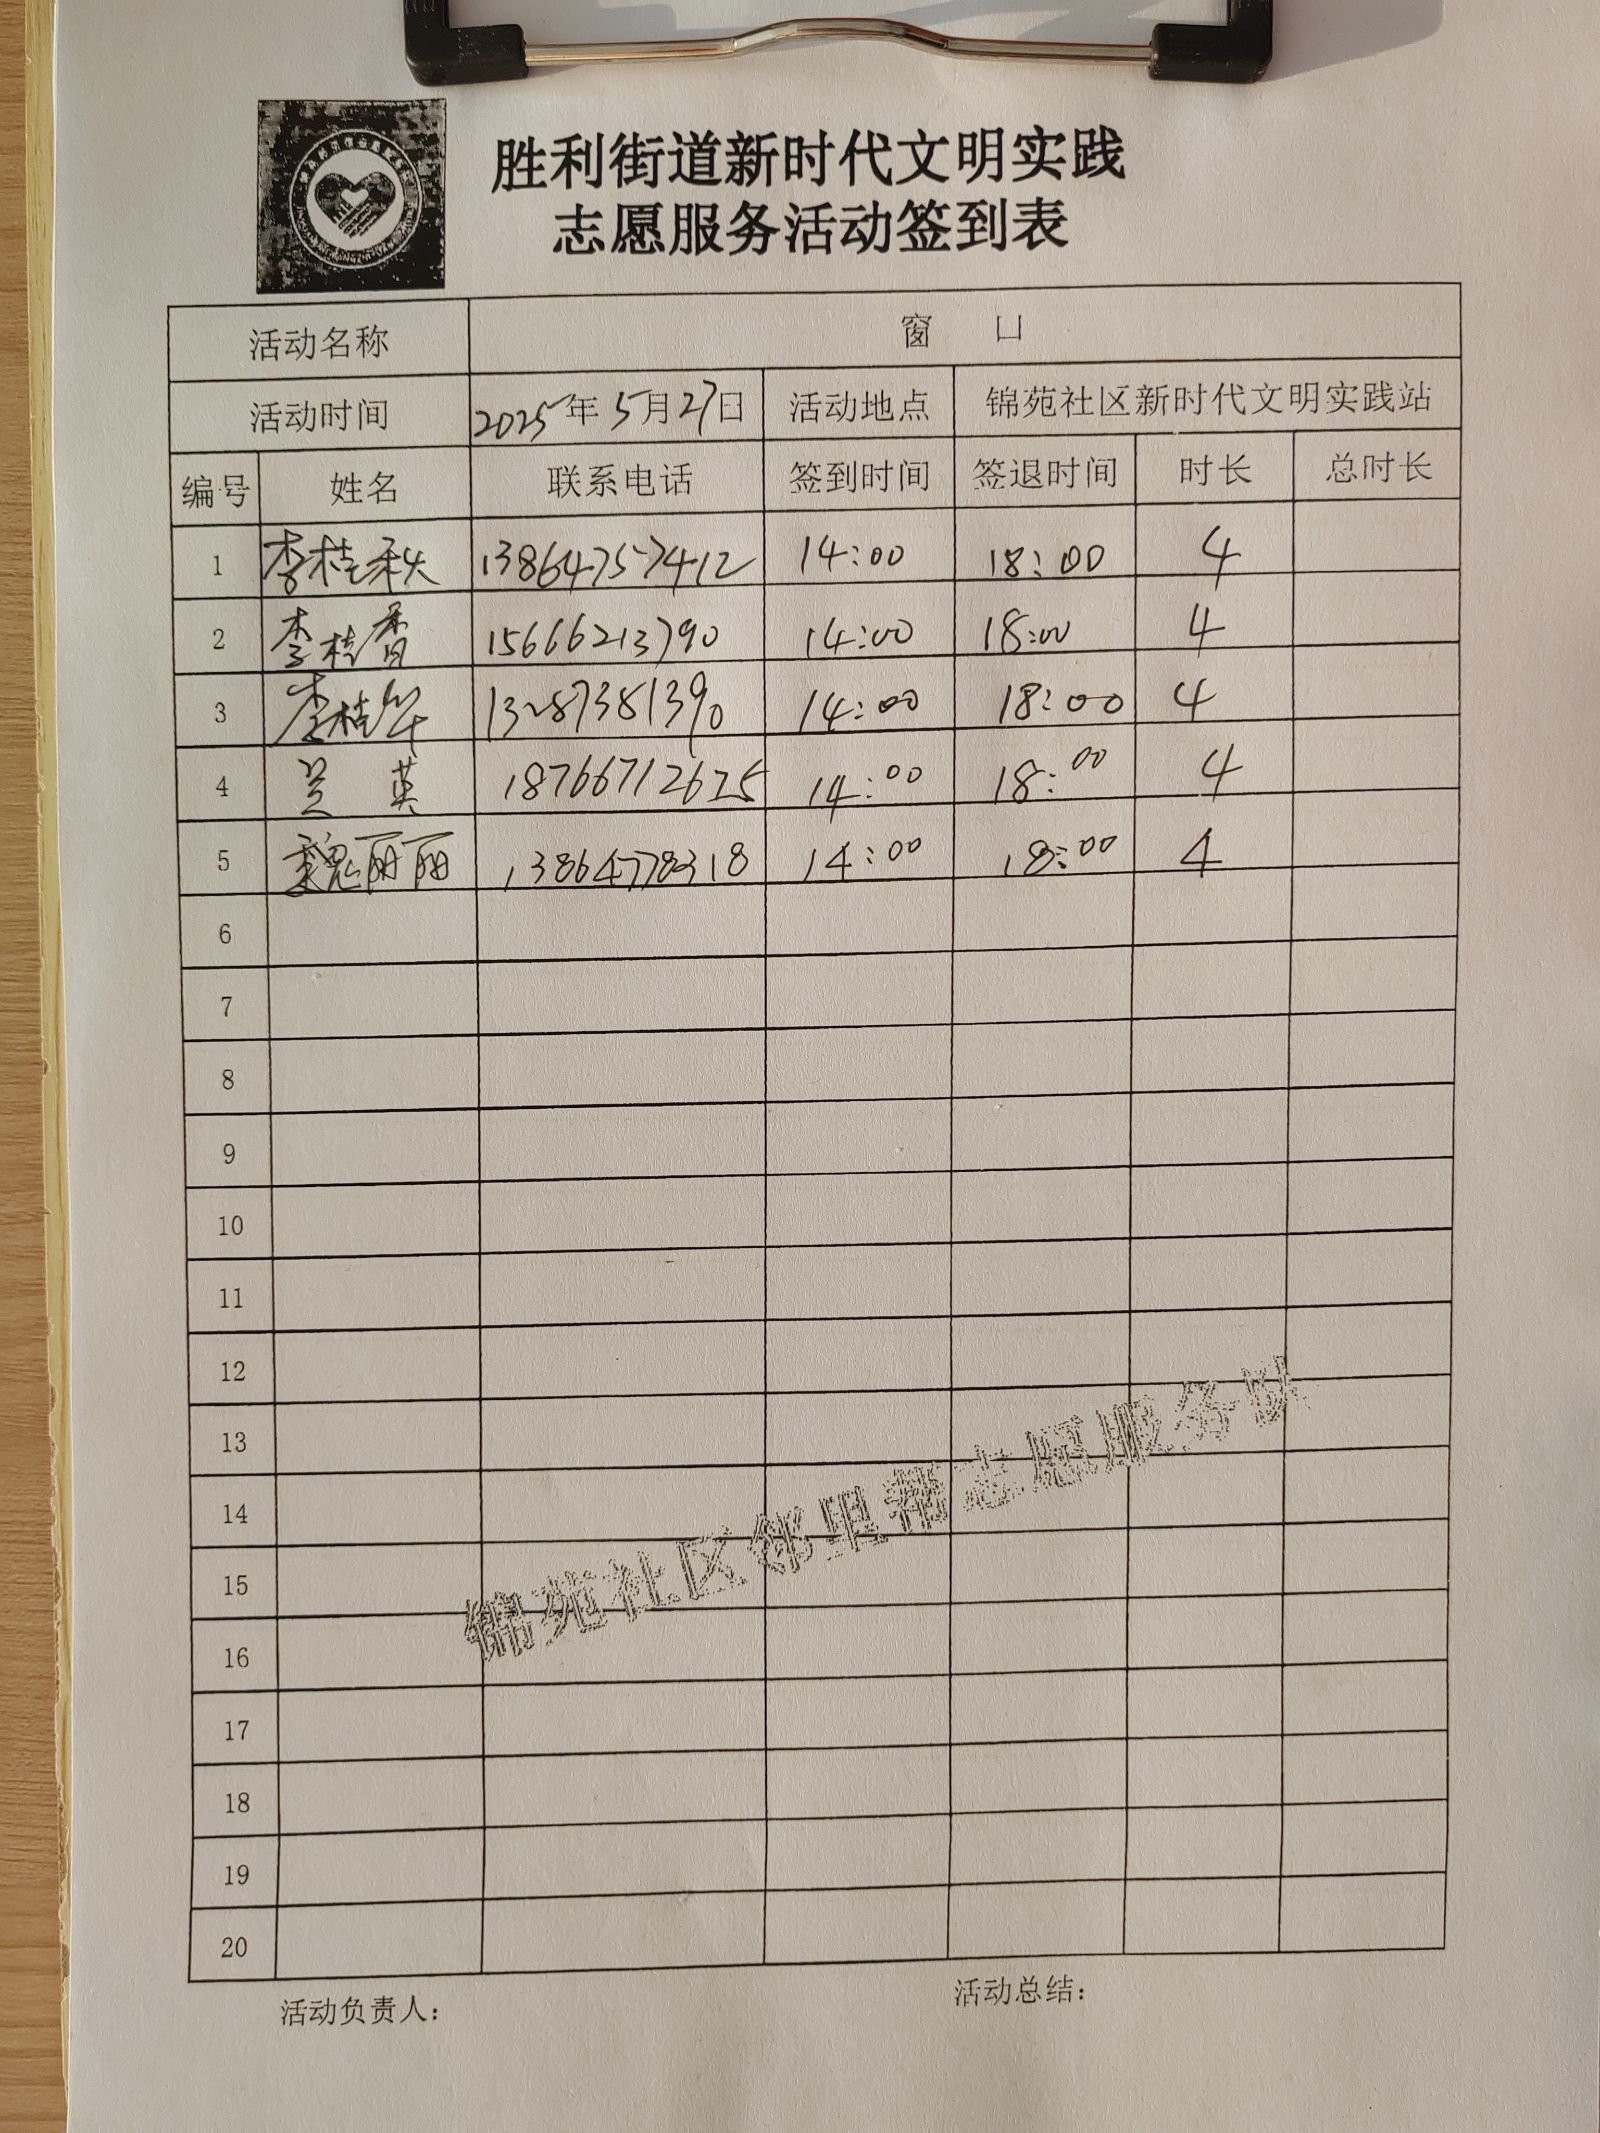 胜利街道新时代文明实践
志愿服务活动签到表
活动名称 窗 口
活动时间 2025年5月27日 活动地点 锦苑社区新时代文明实践站
编号 姓名 联系电话 签到时间 签退时间 时长 总时长
1 李桂秋 13864757412 14:00 18:00 4
2 李桂香 15666213790 14:00 18:00 4
3 李桂华 13287381390 14:00 18:00 4
4 兰 英 18766712625 14:00 18:00 4
5 魏丽丽 13864778318 14:00 18:00 4
6
7
8
9
10
11
12
13
14
15
16
17
18
19
20
锦苑社区邻里帮志愿服务队
活动负责人： 活动总结：